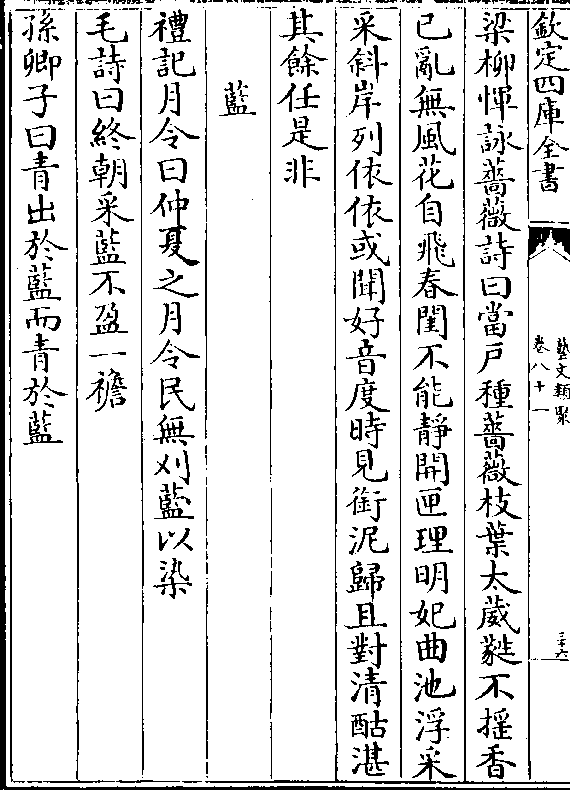 欽定四庫全書
藝文類聚
卷八十一
三十六
梁柳惲詠薔薇詩曰當戶種薔薇枝葉太葳蕤不揺香
已亂無風花自飛春閨不能靜開匣理明妃曲池浮采
采斜岸列依依或聞好音度時見銜泥歸且對清酤湛
其餘任是非
藍
禮記月令曰仲夏之月令民無刈藍以染
毛詩曰終朝采藍不盈一襜
孫卿子曰青出於藍而青於藍